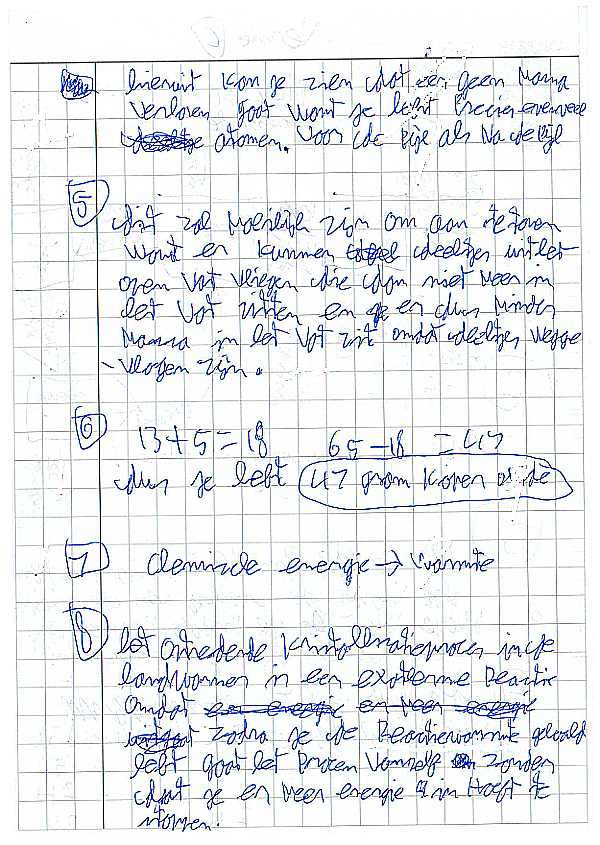 hieruit kan je zien dat er geen massa
verloren gaat want je hebt precies evenveel
atomen. voor de pijl als na de pijl
5
dit zal moeilijk zijn om aan te tonen
want er kunnen deeltjes uit het
open vat vliegen die dan niet meer in
het vat zitten en er dus minder
massa in het vat zit omdat deeltjes wegge
-vlogen zijn.
6
13+5=18 65-18 = 47
dus je hebt 47 gram koper oxide
7
Chemische energie → warmte
8
het ontstaande kristallisatieproces in de
handwarmer is een exotherme reactie
omdat
zodra je de reactiewarmte gehaald
hebt gaat het proces vanzelf zonder
dat je er meer energie in hoeft te
stomen.